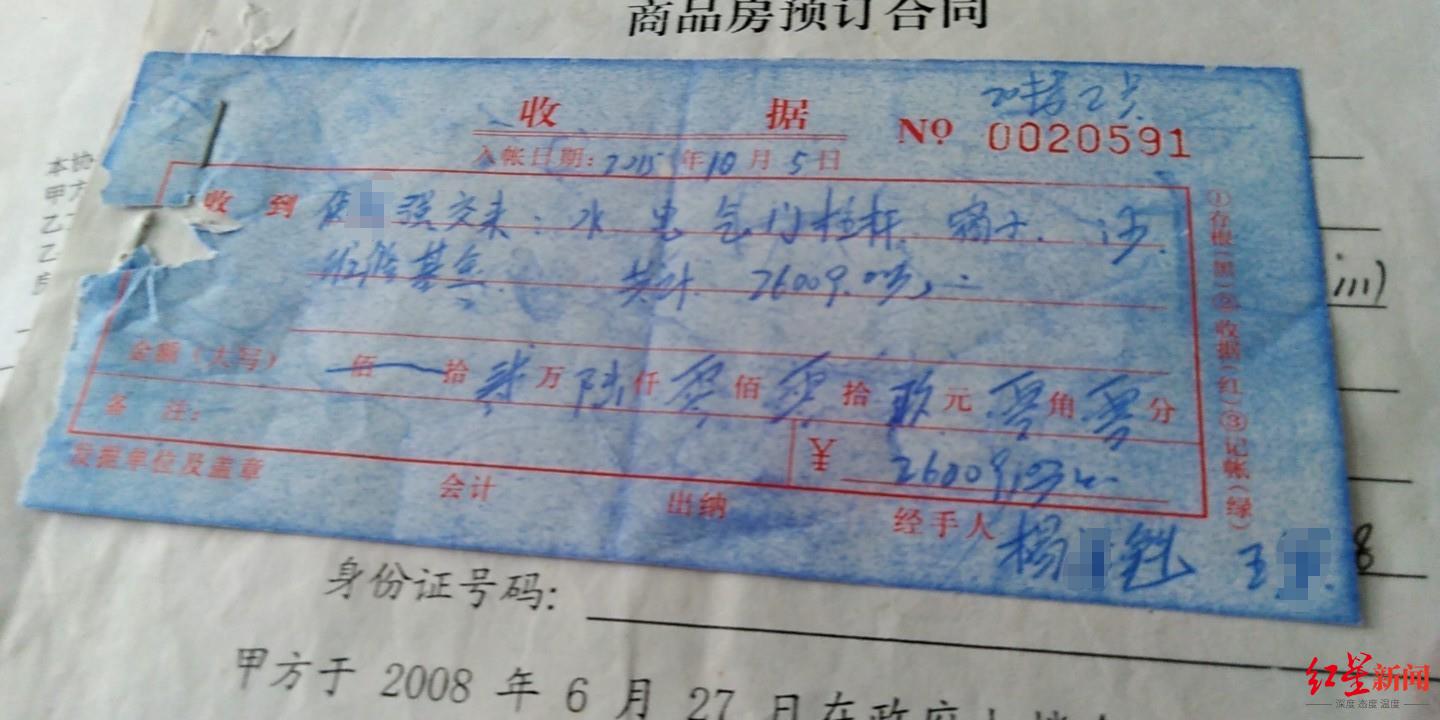 商品房预订合同
收 据
NO 0020591
入帐日期：2015年10月5日
收到 强交来：水 电 气 门 栏杆
维修基金 共计 26009.00
金额（大写） 佰 拾 贰 万 陆 仟 零 佰 零 拾 玖 元 零 角 零 分
备 注：
¥ 26009.00
发据单位及盖章 会计 出纳 经手人 杨 王
①存根(黑)②收据(红)③记帐(绿)
本协
甲方
乙
乙
房
8
身份证号码：
甲方于 2008 年 6 月 27 日在政府
红星新闻
深度 态度 温度